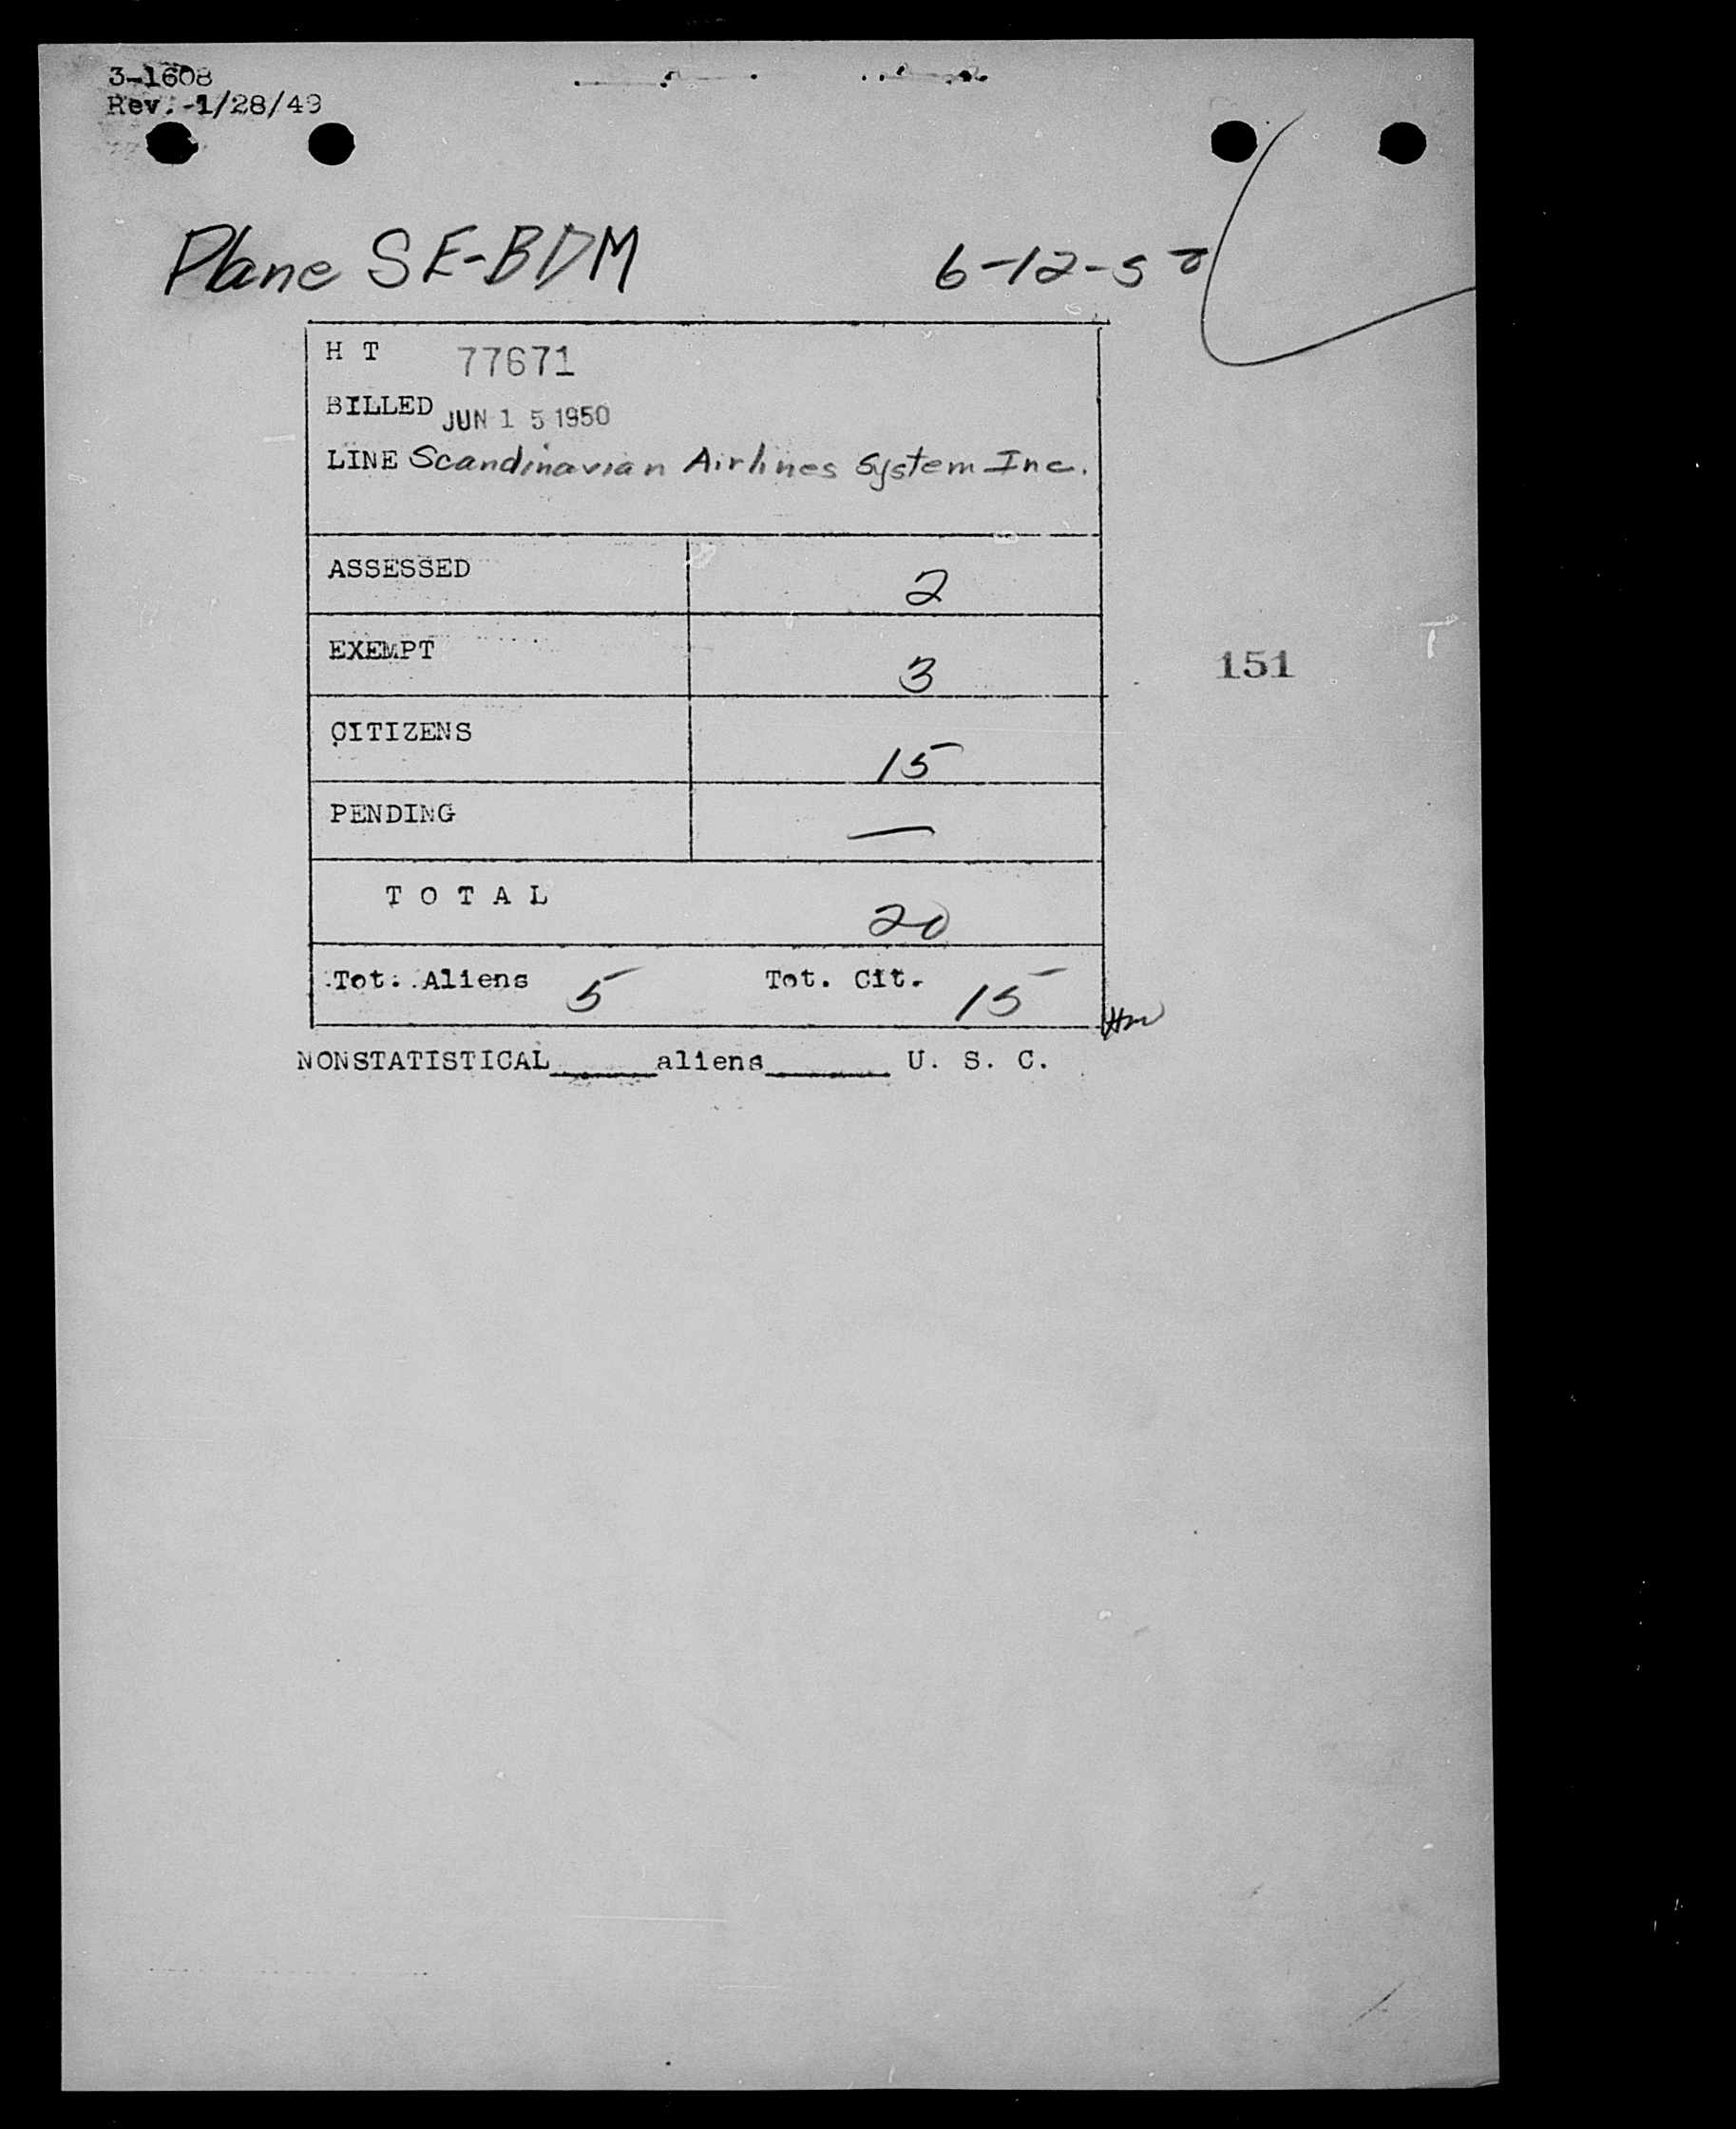 3-1608
Rev. -1/28/49
Plane SE-BDM 6-12-50
H T 77671
BILLED JUN 15 1950
LINE Scandinavian Airlines System Inc.
ASSESSED 2
EXEMPT 3
151
CITIZENS 15
PENDING —
T O T A L 20
Tot. Aliens 5 Tot. Cit. 15
NONSTATISTICAL_____aliens______ U. S. C.